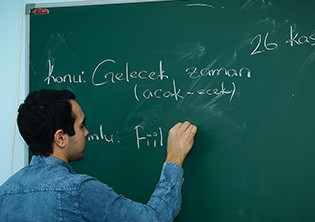 26 Kas
Konu: Gelecek zaman
(acak-ecek)
Fiil